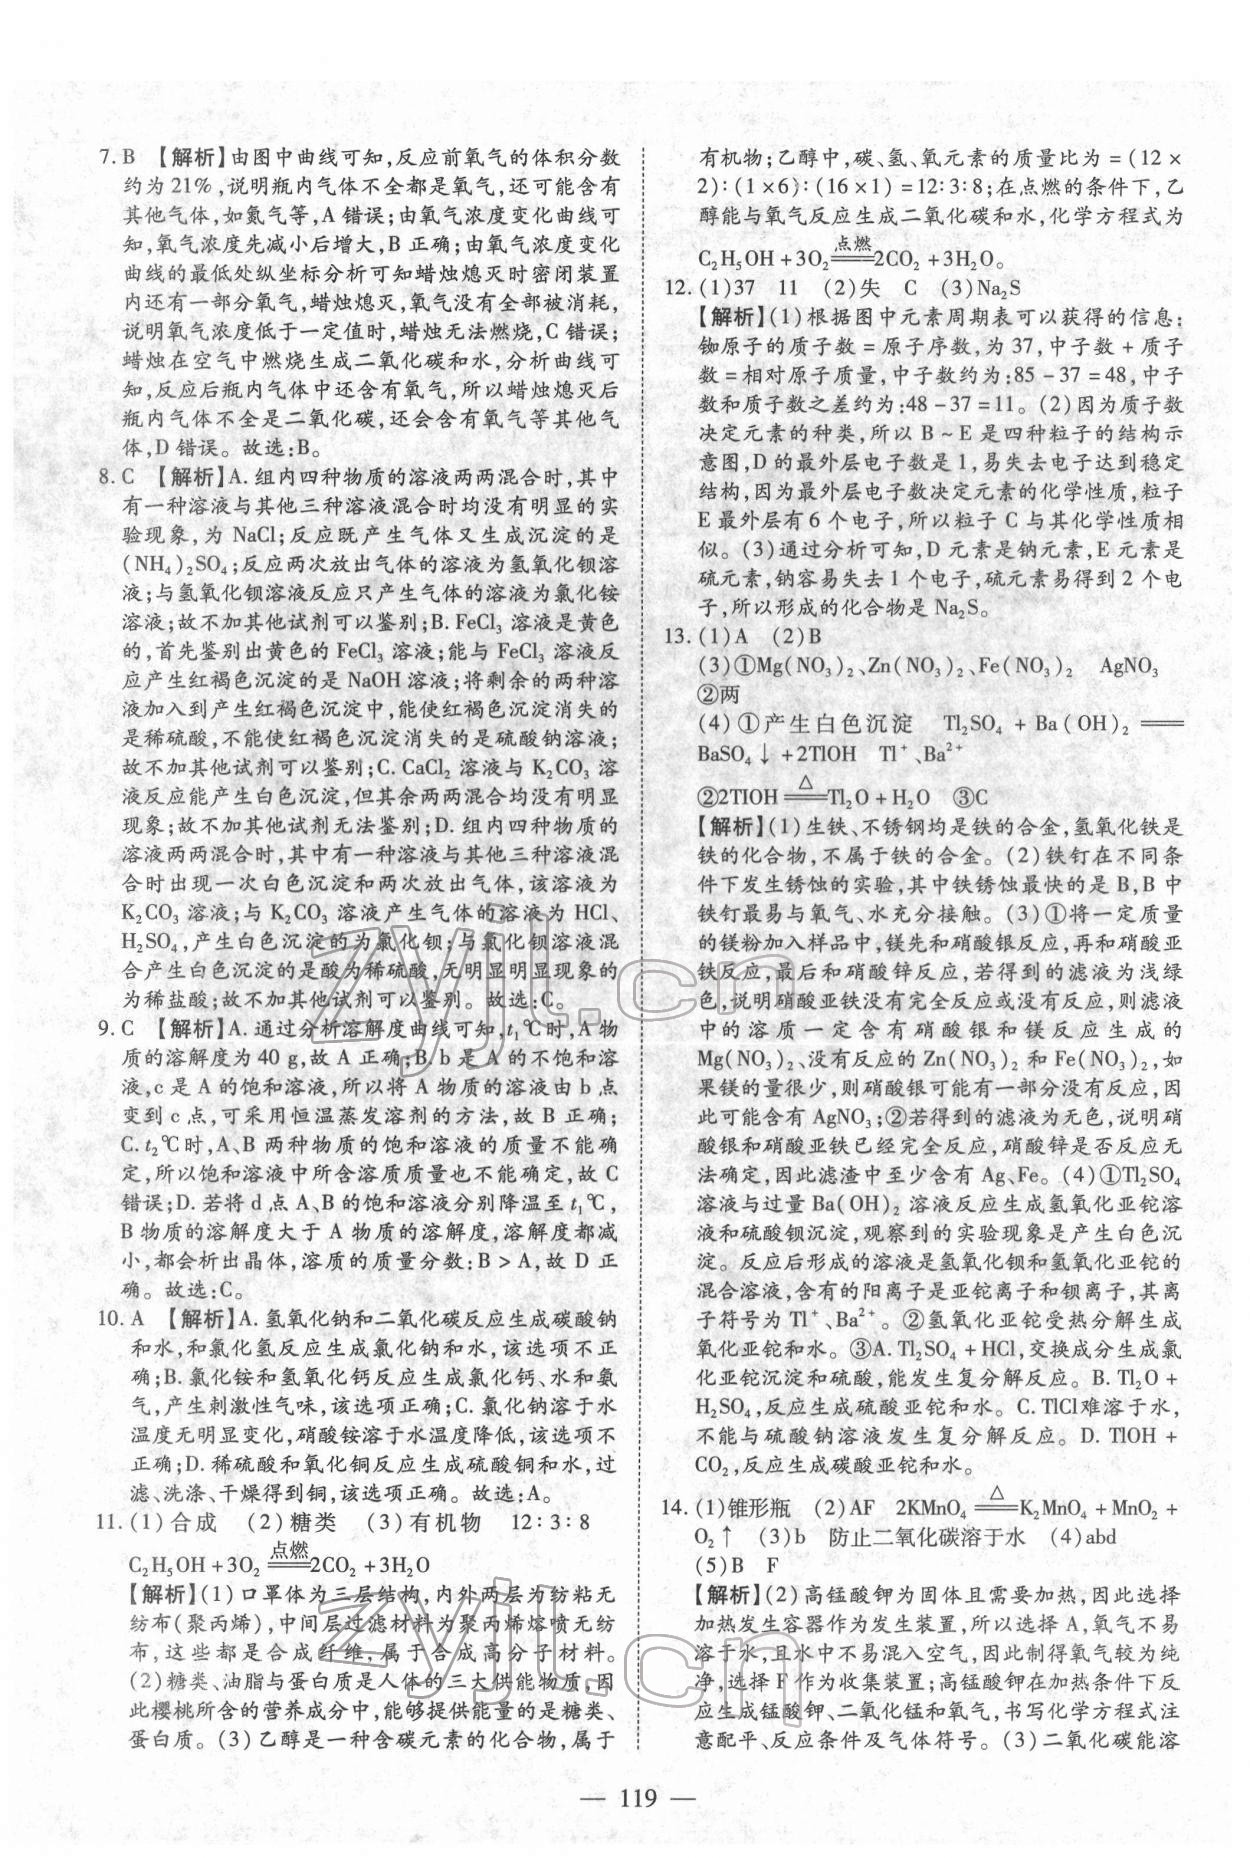 7. B 【解析】由图中曲线可知,反应前氧气的体积分数
约为21%,说明瓶内气体不全都是氧气,还可能含有
其他气体,如氮气等,A错误;由氧气浓度变化曲线可
知,氧气浓度先减小后增大,B正确;由氧气浓度变化
曲线的最低处纵坐标分析可知蜡烛熄灭时密闭装置
内还有一部分氧气,蜡烛熄灭,氧气没有全部被消耗,
说明氧气浓度低于一定值时,蜡烛无法燃烧,C错误;
蜡烛在空气中燃烧生成二氧化碳和水,分析曲线可
知,反应后瓶内气体中还含有氧气,所以蜡烛熄灭后
瓶内气体不全是二氧化碳,还会含有氧气等其他气
体,D错误。故选:B。
8. C 【解析】A.组内四种物质的溶液两两混合时,其中
有一种溶液与其他三种溶液混合时均没有明显的实
验现象,为NaCl;反应既产生气体又生成沉淀的是
(NH₄)₂SO₄;反应两次放出气体的溶液为氢氧化钡溶
液;与氢氧化钡溶液反应只产生气体的溶液为氯化铵
溶液;故不加其他试剂可以鉴别;B.FeCl₃溶液是黄色
的,首先鉴别出黄色的FeCl₃溶液;能与FeCl₃溶液反
应产生红褐色沉淀的是NaOH溶液;将剩余的两种溶
液加入到产生红褐色沉淀中,能使红褐色沉淀消失的
是稀硫酸,不能使红褐色沉淀消失的是硫酸钠溶液;
故不加其他试剂可以鉴别;C.CaCl₂溶液与K₂CO₃溶
液反应能产生白色沉淀,但其余两两混合均没有明显
现象;故不加其他试剂无法鉴别;D.组内四种物质的
溶液两两混合时,其中有一种溶液与其他三种溶液混
合时出现一次白色沉淀和两次放出气体,该溶液为
K₂CO₃溶液;与K₂CO₃溶液产生气体的溶液为HCl、
H₂SO₄,产生白色沉淀的为氯化钡;与氯化钡溶液混
合产生白色沉淀的是酸为稀硫酸,无明显明显现象的
为稀盐酸;故不加其他试剂可以鉴别。故选:C。
9. C 【解析】A.通过分析溶解度曲线可知,t₁℃时,A物
质的溶解度为40 g,故A正确;B.b是A的不饱和溶
液,c是A的饱和溶液,所以将A物质的溶液由b点
变到c点,可采用恒温蒸发溶剂的方法,故B正确;
C.t₂℃时,A、B两种物质的饱和溶液的质量不能确
定,所以饱和溶液中所含溶质质量也不能确定,故C
错误;D.若将d点A、B的饱和溶液分别降温至t₁℃,
B物质的溶解度大于A物质的溶解度,溶解度都减
小,都会析出晶体,溶质的质量分数:B>A,故D正
确。故选:C。
10. A 【解析】A.氢氧化钠和二氧化碳反应生成碳酸钠
和水,和氯化氢反应生成氯化钠和水,该选项不正
确;B.氯化铵和氢氧化钙反应生成氯化钙、水和氨
气,产生刺激性气味,该选项正确;C.氯化钠溶于水
温度无明显变化,硝酸铵溶于水温度降低,该选项不
正确;D.稀硫酸和氧化铜反应生成硫酸铜和水,过
滤、洗涤、干燥得到铜,该选项正确。故选:A。
11. (1)合成 (2)糖类 (3)有机物 12∶3∶8
C₂H₅OH+3O₂ 点燃═══ 2CO₂+3H₂O
【解析】(1)口罩体为三层结构,内外两层为纺粘无
纺布(聚丙烯),中间层过滤材料为聚丙烯熔喷无纺
布,这些都是合成纤维,属于合成高分子材料。
(2)糖类、油脂与蛋白质是人体的三大供能物质,因
此樱桃所含的营养成分中,能够提供能量的是糖类、
蛋白质。(3)乙醇是一种含碳元素的化合物,属于
有机物;乙醇中,碳、氢、氧元素的质量比为=(12×
2)∶(1×6)∶(16×1)=12∶3∶8;在点燃的条件下,乙
醇能与氧气反应生成二氧化碳和水,化学方程式为
C₂H₅OH+3O₂ 点燃═══ 2CO₂+3H₂O。
12. (1)37 11 (2)失 C (3)Na₂S
【解析】(1)根据图中元素周期表可以获得的信息:
铷原子的质子数=原子序数,为37,中子数+质子
数=相对原子质量,中子数约为:85-37=48,中子
数和质子数之差约为:48-37=11。(2)因为质子数
决定元素的种类,所以B~E是四种粒子的结构示
意图,D的最外层电子数是1,易失去电子达到稳定
结构,因为最外层电子数决定元素的化学性质,粒子
E最外层有6个电子,所以粒子C与其化学性质相
似。(3)通过分析可知,D元素是钠元素,E元素是
硫元素,钠容易失去1个电子,硫元素易得到2个电
子,所以形成的化合物是Na₂S。
13. (1)A (2)B
(3)①Mg(NO₃)₂、Zn(NO₃)₂、Fe(NO₃)₂ AgNO₃
②两
(4)①产生白色沉淀 Tl₂SO₄+Ba(OH)₂═══
BaSO₄↓+2TlOH Tl⁺、Ba²⁺
②2TlOH △═══ Tl₂O+H₂O ③C
【解析】(1)生铁、不锈钢均是铁的合金,氢氧化铁是
铁的化合物,不属于铁的合金。(2)铁钉在不同条
件下发生锈蚀的实验,其中铁锈蚀最快的是B,B中
铁钉最易与氧气、水充分接触。(3)①将一定质量
的镁粉加入样品中,镁先和硝酸银反应,再和硝酸亚
铁反应,最后和硝酸锌反应,若得到的滤液为浅绿
色,说明硝酸亚铁没有完全反应或没有反应,则滤液
中的溶质一定含有硝酸银和镁反应生成的
Mg(NO₃)₂、没有反应的Zn(NO₃)₂和Fe(NO₃)₂,如
果镁的量很少,则硝酸银可能有一部分没有反应,因
此可能含有AgNO₃;②若得到的滤液为无色,说明硝
酸银和硝酸亚铁已经完全反应,硝酸锌是否反应无
法确定,因此滤渣中至少含有Ag、Fe。(4)①Tl₂SO₄
溶液与过量Ba(OH)₂溶液反应生成氢氧化亚铊溶
液和硫酸钡沉淀,观察到的实验现象是产生白色沉
淀。反应后形成的溶液是氢氧化钡和氢氧化亚铊的
混合溶液,含有的阳离子是亚铊离子和钡离子,其离
子符号为Tl⁺、Ba²⁺。②氢氧化亚铊受热分解生成
氧化亚铊和水。③A.Tl₂SO₄+HCl,交换成分生成氯
化亚铊沉淀和硫酸,能发生复分解反应。B.Tl₂O+
H₂SO₄,反应生成硫酸亚铊和水。C.TlCl难溶于水,
不能与硫酸钠溶液发生复分解反应。D.TlOH+
CO₂,反应生成碳酸亚铊和水。
14. (1)锥形瓶 (2)AF 2KMnO₄ △═══ K₂MnO₄+MnO₂+
O₂↑ (3)b 防止二氧化碳溶于水 (4)abd
(5)B F
【解析】(2)高锰酸钾为固体且需要加热,因此选择
加热发生容器作为发生装置,所以选择A,氧气不易
溶于水,且水中不易混入空气,因此制得氧气较为纯
净,选择F作为收集装置;高锰酸钾在加热条件下反
应生成锰酸钾、二氧化锰和氧气,书写化学方程式注
意配平、反应条件及气体符号。(3)二氧化碳能溶
— 119 —
zyjl.cn
zyjl.cn